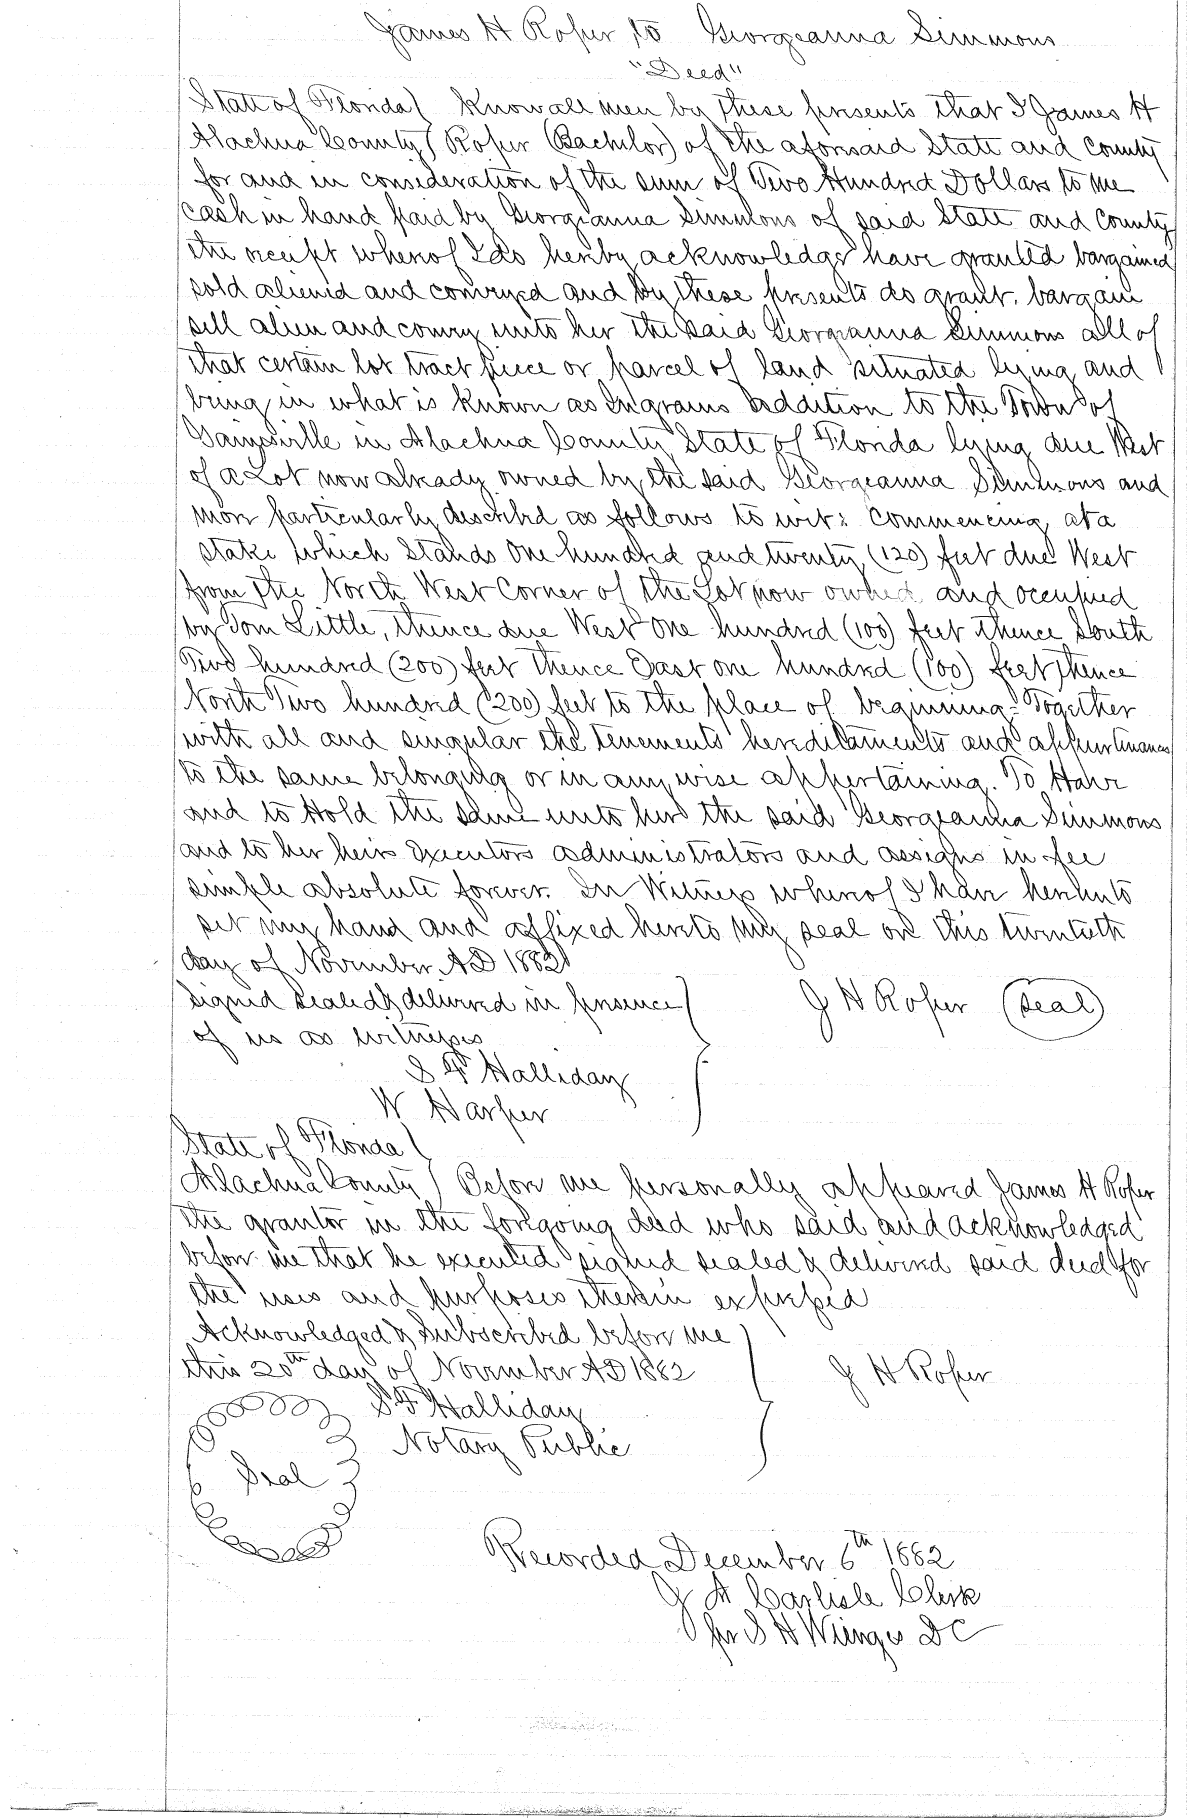 James H Roper to Georgeanna Simmons
"Deed"
State of Florida ( Know all men by these presents that I James H
Alachua County ( Roper (Bachelor) of the aforesaid State and County
for and in consideration of the sum of Two Hundred Dollars to me
cash in hand paid by Georgeanna Simmons of said State and County
the receipt whereof I do hereby acknowledge have granted bargained
sold aliened and conveyed and by these presents do grant. bargain
sell alien and convey unto her the said Georgeanna Simmons all of
that certain lot tract piece or parcel of land situated lying and
being in what is known as Ingrams addition to the Town of
Gainesville in Alachua County State of Florida lying due West
of a Lot now already owned by the said Georgeanna Simmons and
more particularly described as follows to wit: Commencing at a
stake which stands One hundred and twenty (120) feet due West
from the North West Corner of the Lot now owned and occupied
by Tom Little, thence due West one hundred (100) feet thence South
Two hundred (200) feet thence East one hundred (100) feet thence
North Two hundred (200) feet to the place of beginning- Together
with all and singular the tenements hereditaments and appurtinances
to the same belonging or in any wise appertaining. To Have
and to Hold the same unto her the said Georgeanna Simmons
and to her heirs Executors administrators and assigns in fee
simple absolute forever. In Witness whereof I have hereunto
set my hand and affixed hereto my seal on this twentieth
day of November AD 1882
Signed sealed & delivered in presence ) J H Roper (Seal)
of us as witnesses
S F Halliday
W Harper
State of Florida (
Alachua County ) Before me personally appeared James H Roper
the grantor in the foregoing deed who said and acknowledged
before me that he executed signed sealed & delivered said deed for
the uses and purposes therein expressed
Acknowledged & Subscribed before me
this 20th day of November AD 1882 J H Roper
S F Halliday
Notary Public
Seal
Recorded December 6th 1882
J A Carlisle Clerk
per S H Wienges DC